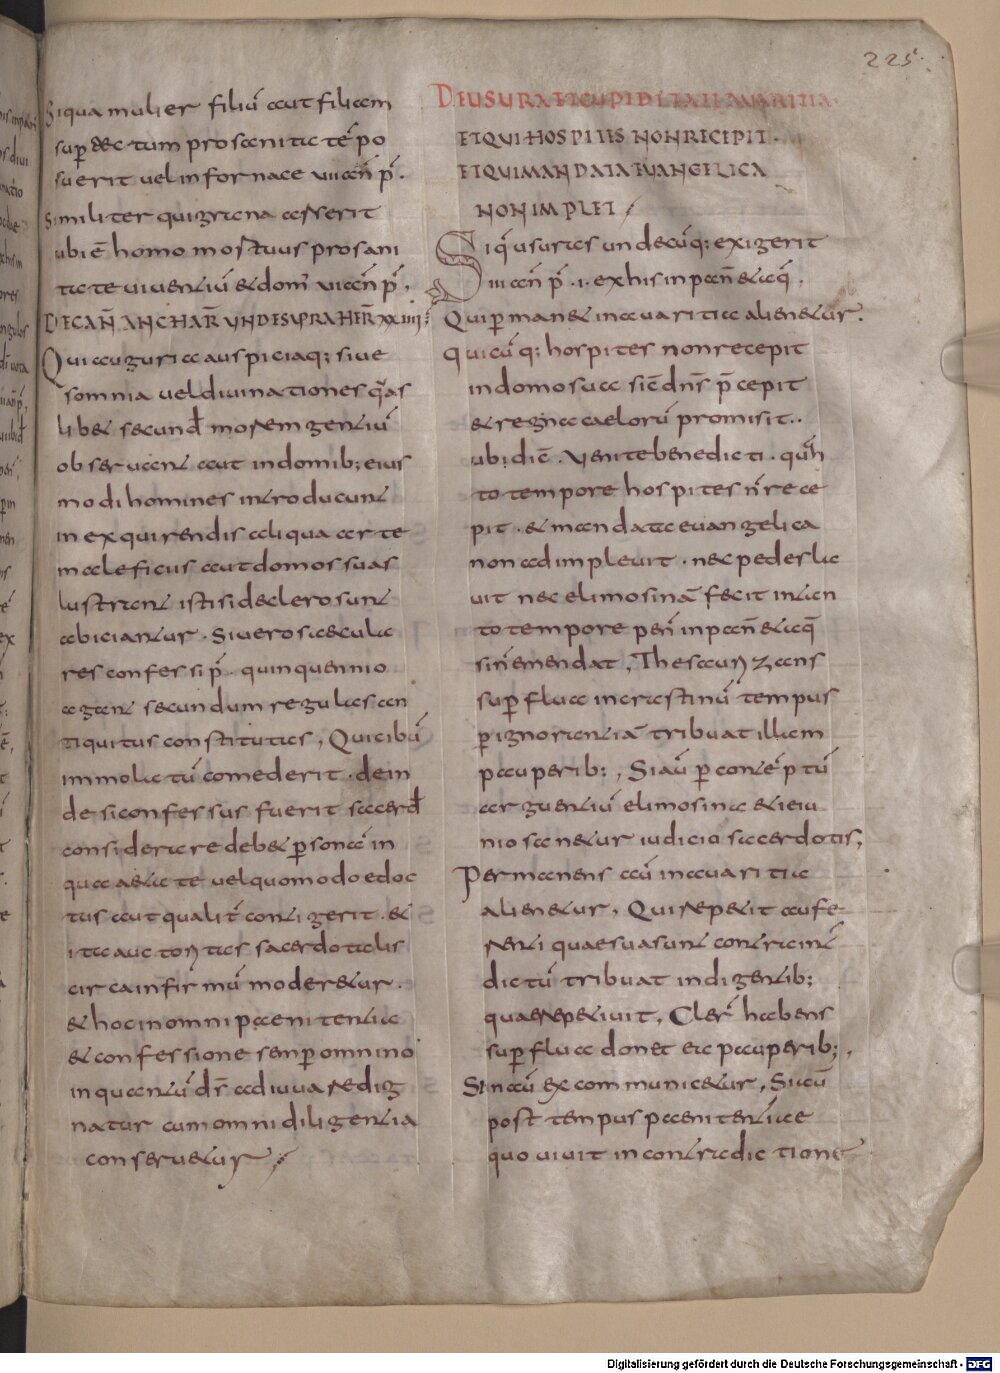 225
Siqua mulier filiū aut filiam
sup̄ tectum pro sanitate tēpo
suerit vel in fornace vii ann̄ p̄.
Similiter qui grana arserit
ubi ē homo mortuus pro sani
tate viventiū & domī v ann̄ p̄.
DE CAN̄ ANCHAR̄ UNDE SUPRA HER̄ XXIIII;
Qui auguria auspiciaq; sive
somnia vel divinationes q̄as
lib& secund̄ morem gentiū
observant aut in domib; eius
modi homines introducunt
in exquirendis aliqua arte
maleficus aut domos suas
lustrant isti si de clero sunt
abiciantur. Si vero saecula
res confessi p̄. quinquennio
agant secundum regulas an
tiquitus constitutas, Qui cibū
immolatū comederit. dein
de si confessus fuerit sacerd̄
considerare deb& p̄sonā in
qua aetate vel quomodo edoc
tus aut qualit̄ contigerit. &
ita auctoritas sacerdotalis
circa infirmū moder&ur.
& hoc in omni paenitentia
& confessione semp̄ omnino
in quantū d̄s adiuva redig
natur cum omni diligentia
conserv&ur
DE USURA ET CUPIDITATE AVARITIA
ET QUI HOSPITES NON RECEPIT.
ET QUI MANDATA EVANGELICA
NON IMPLET
Siq̄ usuras undecūq; exigerit
iii ann̄ p̄ .i. ex his in pan̄ & aq̄.
Qui p̄man& in avaritia alien&ur.
quicūq; hospites non recepit
in domo sua sic̄ dn̄s p̄cepit
& regna caelorū promisit..
ubi dic̄. Venite benedicti. quan
to tempore hospites n̄ rece
pit. & mandata evangelica
non adimplevit. nec pedes la
vit nec elimosinā fecit in tan
to tempore pen̄ in pan̄ & aq̄
si n̄ emendat, Thesaurizans
sup̄flua in crastinū tempus
p̄ ignorantiā tribuat illam
pauperib;, Si aū p̄ contēptū
arguentiū elimosina & ieiu
nio san&ur iudicio sacerdotis,
Permanens aū in avaritia
alien&ur, Qui rep&it aufe
renti quae sua sunt contra int̄
dictū tribuat indigentib;
quae rep&ivit, Cler̄ habens
sup̄flua donet ea pauperib;,
Sin aū excommunic&ur, Si aū
post tempus paenitentiae
quo vivit in contradictione
Digitalisierung gefördert durch die Deutsche Forschungsgemeinschaft - DFG